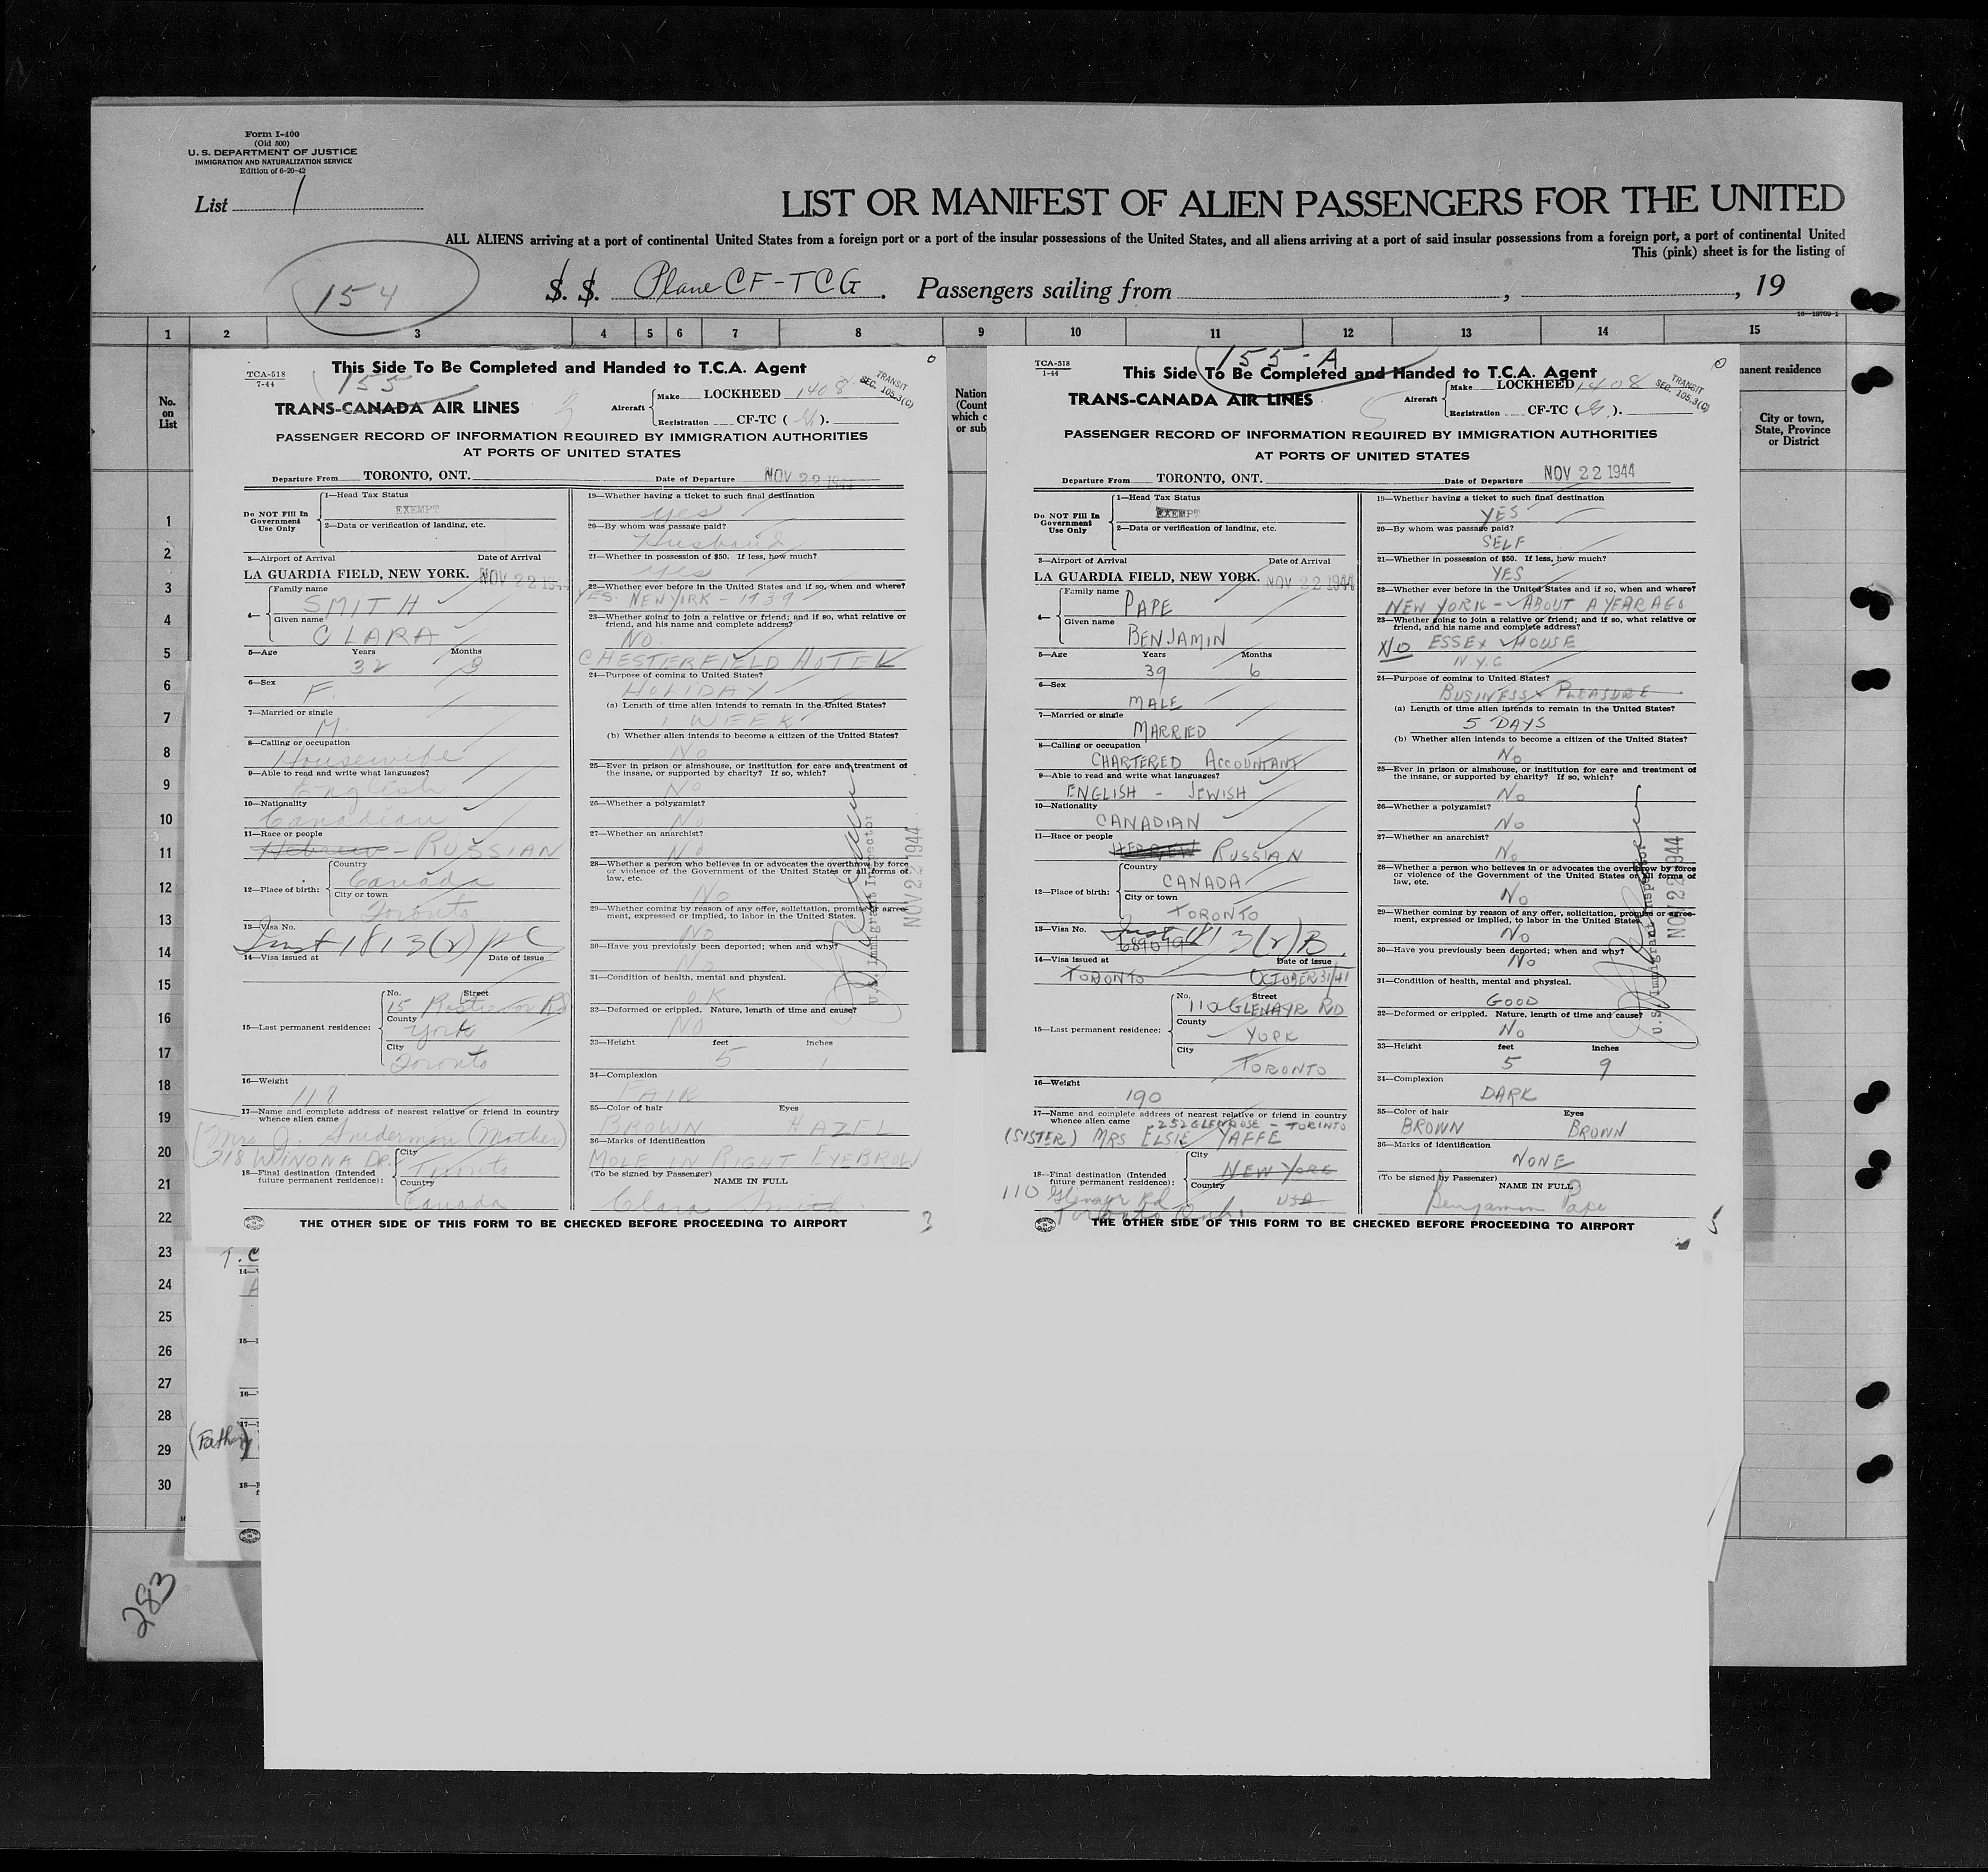 Form I-400
(Old 500)
U. S. DEPARTMENT OF JUSTICE
IMMIGRATION AND NATURALIZATION SERVICE
Edition of 6-20-42
List 1
LIST OR MANIFEST OF ALIEN PASSENGERS FOR THE UNITED
ALL ALIENS arriving at a port of continental United States from a foreign port or a port of the insular possessions of the United States, and all aliens arriving at a port of said insular possessions from a foreign port, a port of continental United
This (pink) sheet is for the listing of
154
S. S. Plane CF-TCG. Passengers sailing from , , 19
1 2 3 4 5 6 7 8 9 10 11 12 13 14 15
No.
on
List
TCA-518
7-44
This Side To Be Completed and Handed to T.C.A. Agent
155
TRANS-CANADA AIR LINES
Aircraft
Make LOCKHEED 1408
Registration CF-TC (G).
TRANSIT
SEC. 105.3(C)
PASSENGER RECORD OF INFORMATION REQUIRED BY IMMIGRATION AUTHORITIES
AT PORTS OF UNITED STATES
Departure From TORONTO, ONT. Date of Departure NOV 22 1944
Do NOT Fill In
Government
Use Only
1—Head Tax Status
EXEMPT
2—Data or verification of landing, etc.
3—Airport of Arrival Date of Arrival
LA GUARDIA FIELD, NEW YORK. NOV 22 194
4— Family name
SMITH
Given name
CLARA
5—Age Years Months
32
6—Sex
F.
7—Married or single
M.
8—Calling or occupation
Housewife
9—Able to read and write what languages?
English
10—Nationality
Canadian
11—Race or people
Hebrew - RUSSIAN
12—Place of birth: Country
Canada
City or town
Toronto
13—Visa No.
1813(2)
14—Visa issued at Date of issue
15—Last permanent residence: No. Street
15 Rd
County
York
City
Toronto
16—Weight
118
17—Name and complete address of nearest relative or friend in country
whence alien came
Mrs J. Sniderman (Mother)
218 WINONA DR.
18—Final destination (Intended
future permanent residence): City
Toronto
Country
Canada
19—Whether having a ticket to such final destination
yes
20—By whom was passage paid?
Husband
21—Whether in possession of $50. If less, how much?
yes
22—Whether ever before in the United States and if so, when and where?
YES. NEW YORK - 1939
23—Whether going to join a relative or friend; and if so, what relative or
friend, and his name and complete address?
NO.
CHESTERFIELD HOTEL
24—Purpose of coming to United States?
HOLIDAY
(a) Length of time alien intends to remain in the United States?
1 WEEK
(b) Whether alien intends to become a citizen of the United States?
No
25—Ever in prison or almshouse, or institution for care and treatment of
the insane, or supported by charity? If so, which?
No
26—Whether a polygamist?
No
27—Whether an anarchist?
No
28—Whether a person who believes in or advocates the overthrow by force
or violence of the Government of the United States or all forms of
law, etc.
No
29—Whether coming by reason of any offer, solicitation, promise or agree-
ment, expressed or implied, to labor in the United States.
No
30—Have you previously been deported; when and why?
No
31—Condition of health, mental and physical.
OK
32—Deformed or crippled. Nature, length of time and cause?
No
33—Height feet inches
5 1
34—Complexion
FAIR
35—Color of hair Eyes
BROWN HAZEL
36—Marks of identification
MOLE IN RIGHT EYEBROW
(To be signed by Passenger)
NAME IN FULL
Clara Smith
U.S. Immigrant Inspector
NOV 22 1944
THE OTHER SIDE OF THIS FORM TO BE CHECKED BEFORE PROCEEDING TO AIRPORT
3
Nation
(Count
which c
or sub
TCA-518
1-44
This Side To Be Completed and Handed to T.C.A. Agent
155-A
TRANS-CANADA AIR LINES
Aircraft
Make LOCKHEED 1408
Registration CF-TC (G).
TRANSIT
SEC. 105.3(C)
PASSENGER RECORD OF INFORMATION REQUIRED BY IMMIGRATION AUTHORITIES
AT PORTS OF UNITED STATES
Departure From TORONTO, ONT. Date of Departure NOV 22 1944
Do NOT Fill In
Government
Use Only
1—Head Tax Status
EXEMPT
2—Data or verification of landing, etc.
3—Airport of Arrival Date of Arrival
LA GUARDIA FIELD, NEW YORK. NOV 22 1944
4— Family name
PAPE
Given name
BENJAMIN
5—Age Years Months
39 6
6—Sex
MALE
7—Married or single
MARRIED
8—Calling or occupation
CHARTERED ACCOUNTANT
9—Able to read and write what languages?
ENGLISH - JEWISH
10—Nationality
CANADIAN
11—Race or people
HEBREW RUSSIAN
12—Place of birth: Country
CANADA
City or town
TORONTO
13—Visa No.
1813(2)B
14—Visa issued at Date of issue
TORONTO OCTOBER 31/41
15—Last permanent residence: No. Street
110 GLENAYR RD
County
YORK
City
TORONTO
16—Weight
190
17—Name and complete address of nearest relative or friend in country
whence alien came 252 GLENROSE - TORONTO
(SISTER) MRS ELSIE YAFFE
18—Final destination (Intended
future permanent residence): City
NEW YORK
Country
USA
110 Glenayr Rd
Toronto Ont.
19—Whether having a ticket to such final destination
YES
20—By whom was passage paid?
SELF
21—Whether in possession of $50. If less, how much?
YES
22—Whether ever before in the United States and if so, when and where?
NEW YORK - ABOUT A YEAR AGO
23—Whether going to join a relative or friend; and if so, what relative or
friend, and his name and complete address?
NO ESSEX HOUSE
N.Y.C
24—Purpose of coming to United States?
BUSINESS & PLEASURE
(a) Length of time alien intends to remain in the United States?
5 DAYS
(b) Whether alien intends to become a citizen of the United States?
No
25—Ever in prison or almshouse, or institution for care and treatment of
the insane, or supported by charity? If so, which?
No
26—Whether a polygamist?
No
27—Whether an anarchist?
No
28—Whether a person who believes in or advocates the overthrow by force
or violence of the Government of the United States or all forms of
law, etc.
No
29—Whether coming by reason of any offer, solicitation, promise or agree-
ment, expressed or implied, to labor in the United States.
No
30—Have you previously been deported; when and why?
No
31—Condition of health, mental and physical.
GOOD
32—Deformed or crippled. Nature, length of time and cause?
No
33—Height feet inches
5 9
34—Complexion
DARK
35—Color of hair Eyes
BROWN BROWN
36—Marks of identification
NONE
(To be signed by Passenger)
NAME IN FULL
Benjamin Pape
U.S. Immigrant Inspector
NOV 22 1944
THE OTHER SIDE OF THIS FORM TO BE CHECKED BEFORE PROCEEDING TO AIRPORT
5
manent residence
City or town,
State, Province
or District
1
2
3
4
5
6
7
8
9
10
11
12
13
14
15
16
17
18
19
20
21
22
23
24
25
26
27
28
29
30
T.C
(Father)
283